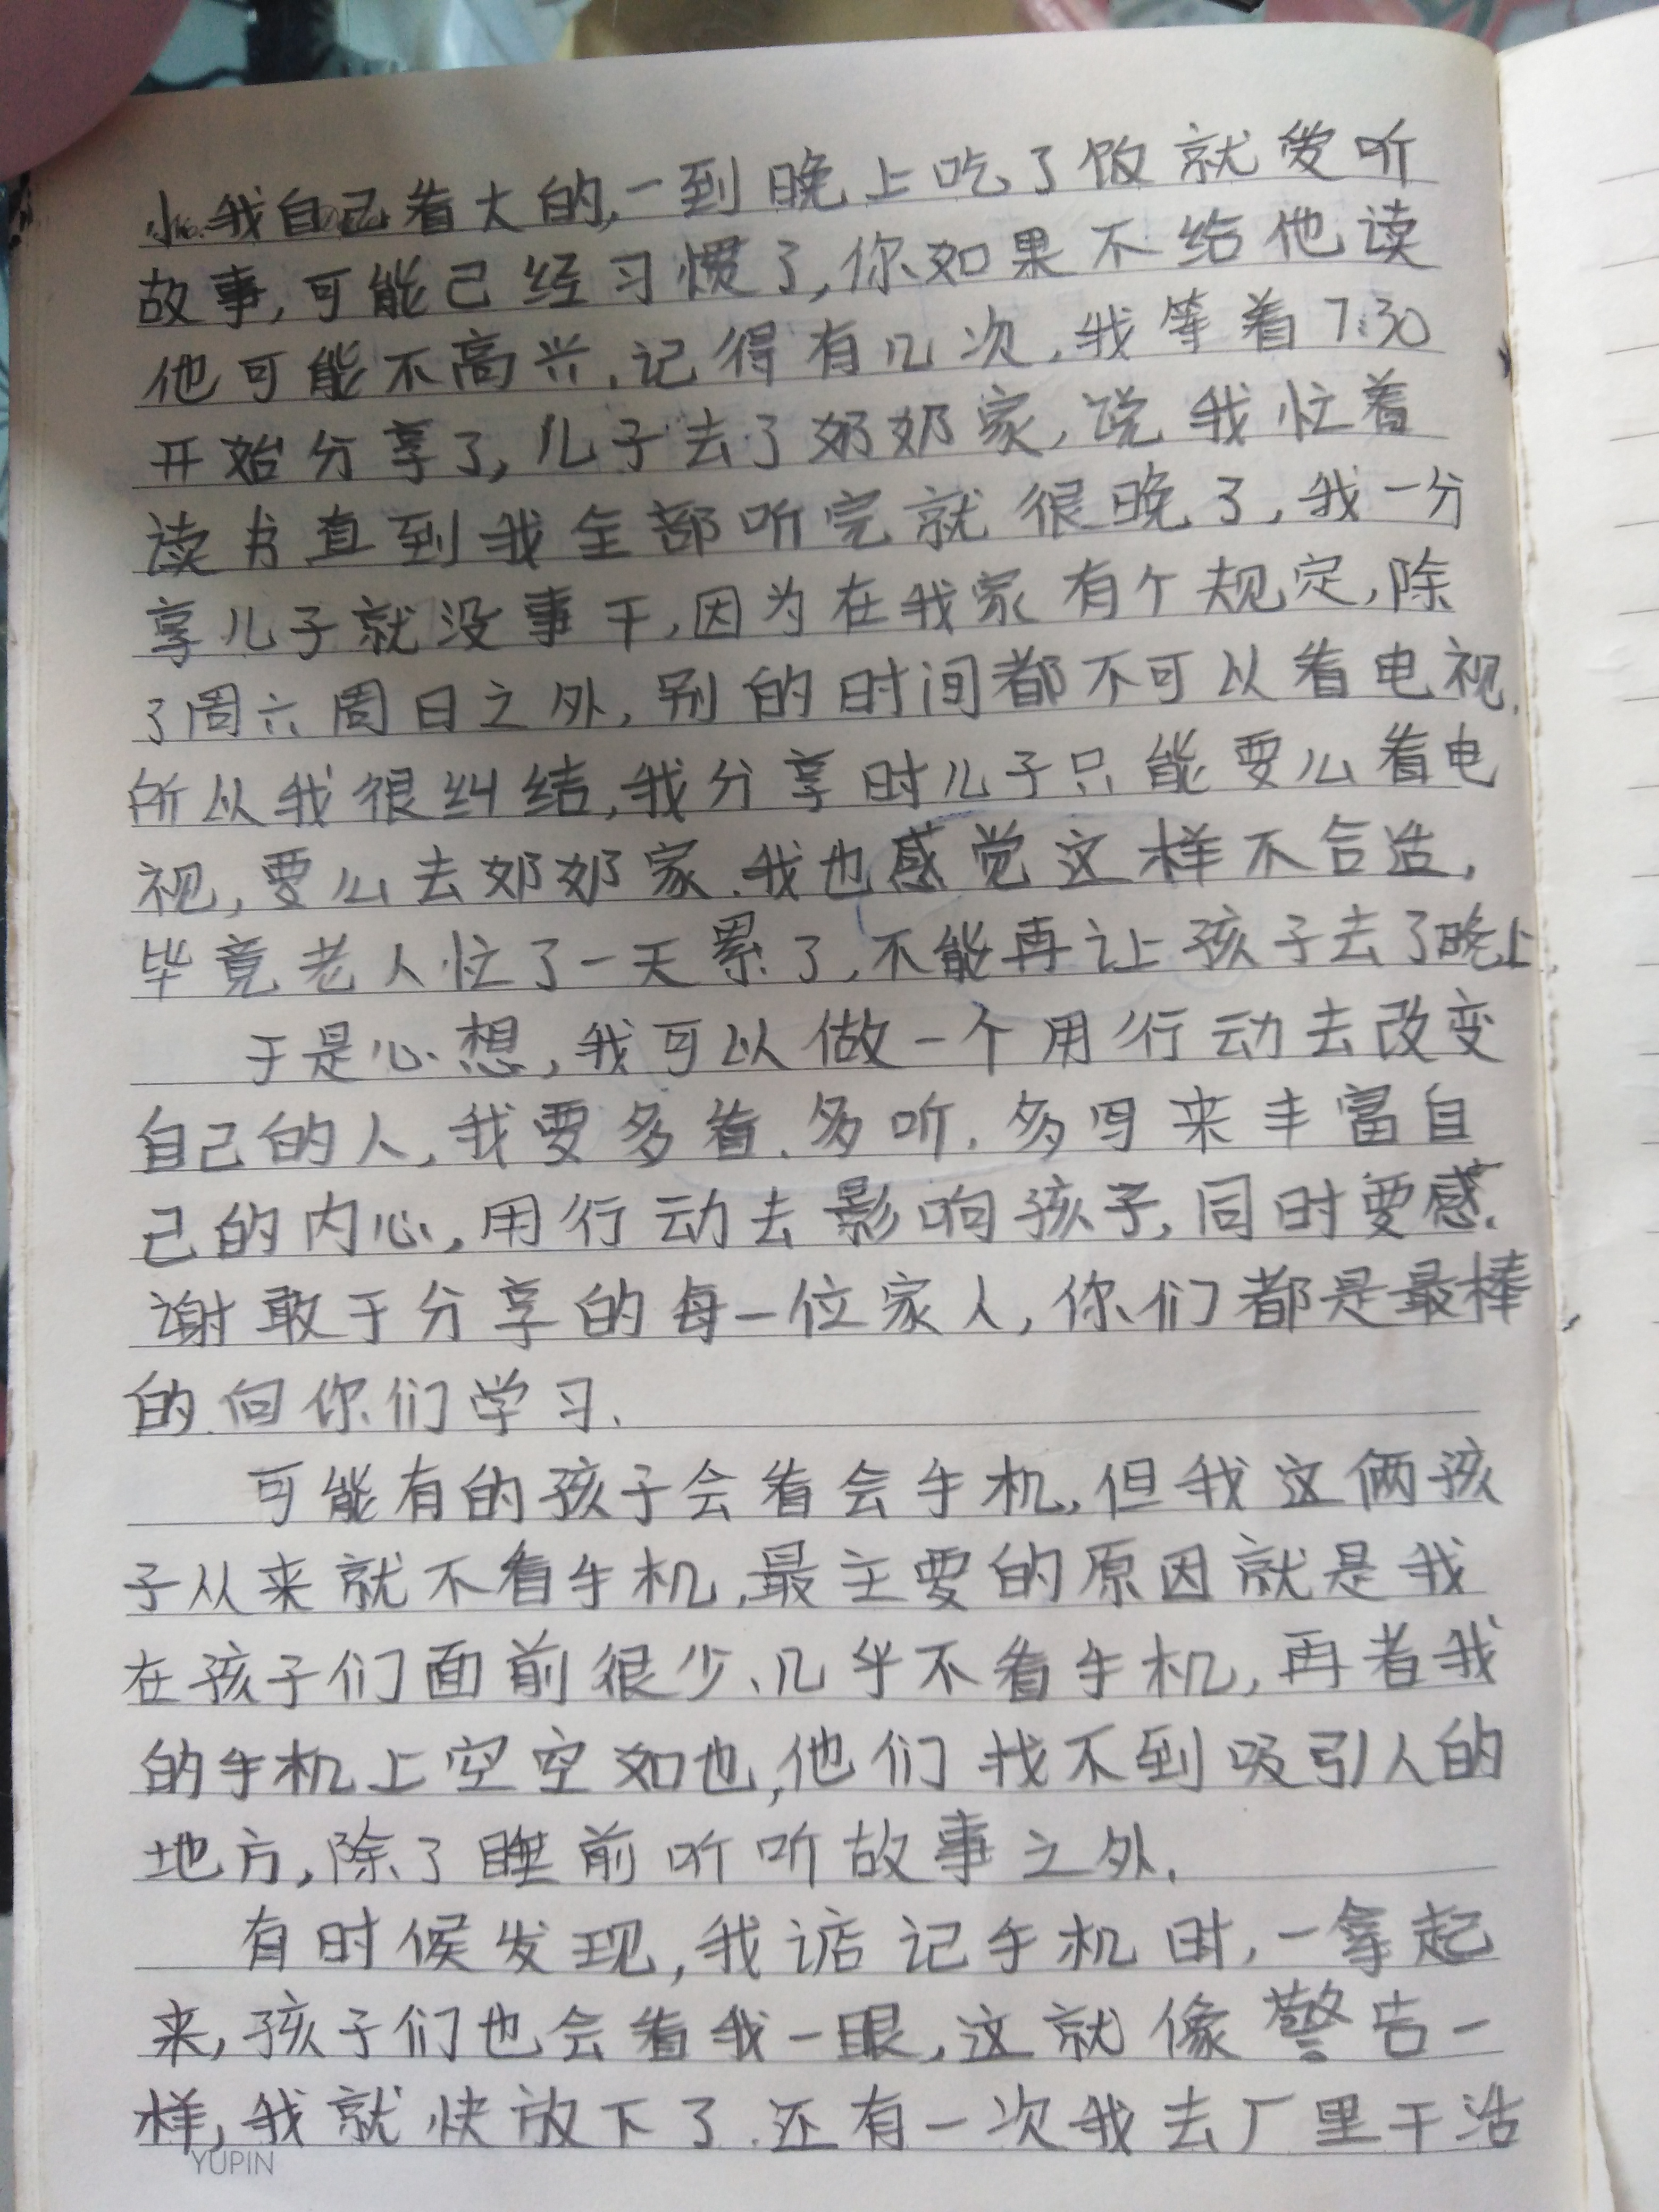 小.我自己看大的,一到晚上吃了饭就爱听
故事,可能己经习惯了,你如果不给他读
他可能不高兴,记得有几次,我等着7:30
开始分享了,儿子去了奶奶家,说我忙着
读书直到我全部听完就很晚了,我一分
享儿子就没事干,因为在我家有个规定,除
了周六周日之外,别的时间都不可以看电视,
所以我很纠结,我分享时儿子只能要么看电
视,要么去奶奶家.我也感觉这样不合适,
毕竟老人忙了一天累了,不能再让孩子去了晚上.
于是心想,我可以做一个用行动去改变
自己的人,我要多看.多听.多写来丰富自
己的内心,用行动去影响孩子,同时要感
谢敢于分享的每一位家人,你们都是最棒
的.向你们学习.
可能有的孩子会看会手机,但我这俩孩
子从来就不看手机,最主要的原因就是我
在孩子们面前很少、几乎不看手机,再者我
的手机上空空如也,他们找不到吸引人的
地方,除了睡前听听故事之外.
有时候发现,我惦记手机时,一拿起
来,孩子们也会看我一眼,这就像警告一
样,我就快放下了.还有一次我去厂里干活
YUPIN